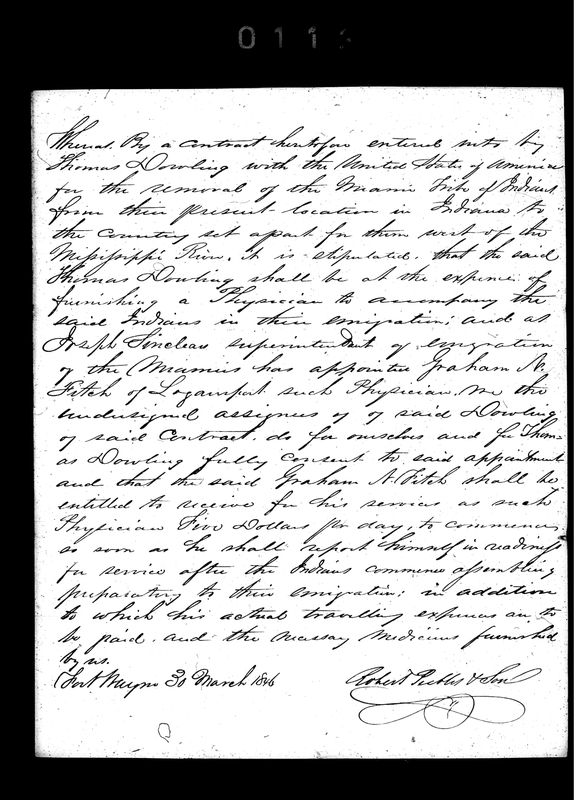 011
Whereas. By a contract heretofore entered into by
Thomas Dowling with the United States of America
for the removal of the Miami Tribe of Indians
from their present location in Indiana to
the Country set apart for them west of the
Mississippi River. it is stipulated. that the said
Thomas Dowling shall be at the expense of
furnishing a Physician to accompany the
said Indians in their emigration; and as
Joseph Sinclear superintendent of emigration
of the Miamies has appointed Graham N.
Fitch of Logansport such Physician. We the
undersigned assignees of of said Dowling
of said Contract. do for ourselves and for Thom=
as Dowling fully consent to said appointment
and that the said Graham N Fitch shall be
entitled to receive for his services as such
Physician Five Dollars per day, to commence
so soon as he shall report himself in readiness
for service after the Indians commence assembling
preparatory to their emigration; in addition
to which his actual travelling expenses are to
be paid. and the necessary medicines furnished
by us.
Fort Wayne 30 March 1846
Robert Peebles & Son